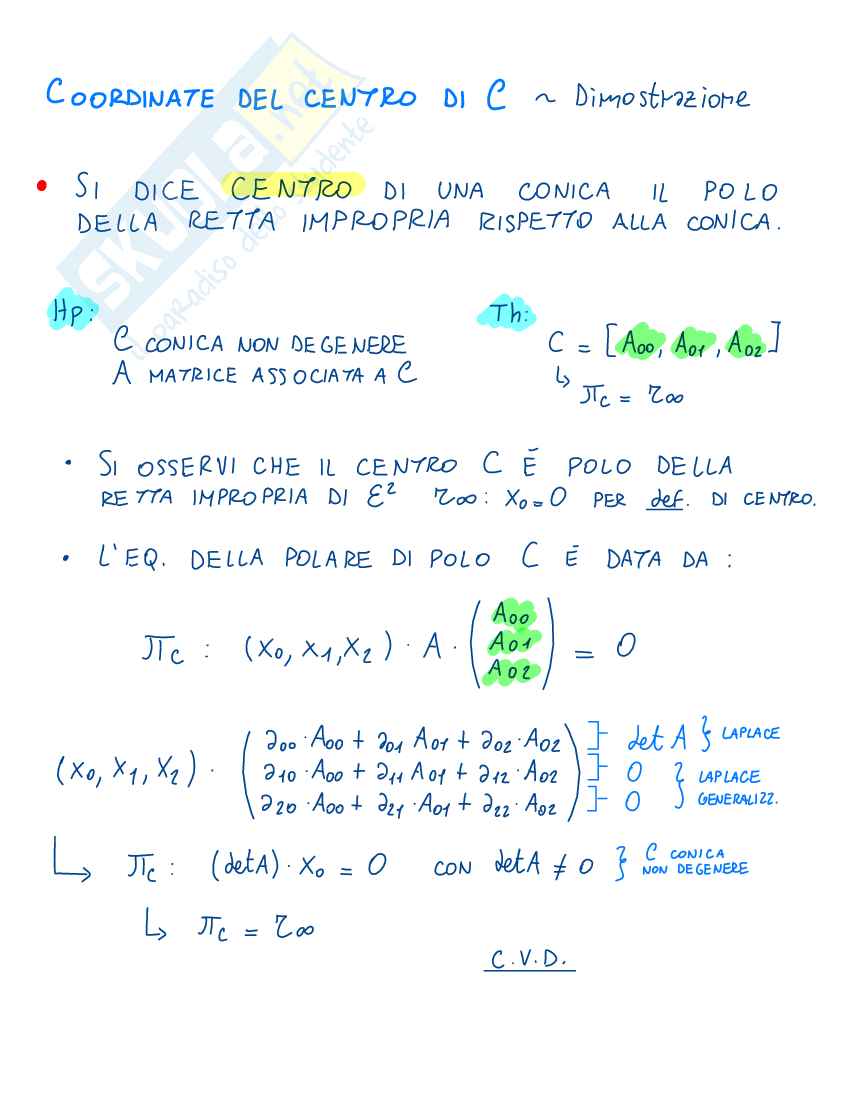 COORDINATE DEL CENTRO DI C ~ Dimostrazione
• SI DICE CENTRO DI UNA CONICA IL POLO
DELLA RETTA IMPROPRIA RISPETTO ALLA CONICA.
Hp:
C CONICA NON DEGENERE
A MATRICE ASSOCIATA A C
Th:
C = [A₀₀, A₀₁, A₀₂]
↳ π_C = r∞
• SI OSSERVI CHE IL CENTRO C È POLO DELLA
RETTA IMPROPRIA DI Ɛ² r∞: X₀=0 PER def. DI CENTRO.
• L'EQ. DELLA POLARE DI POLO C È DATA DA:
π_C : (X₀, X₁, X₂) · A · (A₀₀ A₀₁ A₀₂) = 0
(X₀, X₁, X₂) ·
a₀₀ · A₀₀ + a₀₁ A₀₁ + a₀₂ · A₀₂ ]- det A } LAPLACE
a₁₀ · A₀₀ + a₁₁ A₀₁ + a₁₂ · A₀₂ ]- 0 } LAPLACE
a₂₀ · A₀₀ + a₂₁ · A₀₁ + a₂₂ · A₀₂ ]- 0 GENERALIZZ.
↳ π_C : (det A) · X₀ = 0 CON det A ≠ 0 } C CONICA
NON DEGENERE
↳ π_C = r∞
C.V.D.
SKUOLA.net
il paradiso dello studente